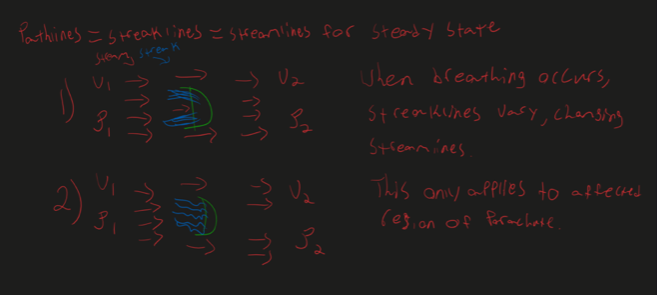 Pathlines = streaklines = streamlines for steady state
stream streak
1)
U1
U2
When breathing occurs,
streaklines vary, changing
streamlines.
ρ1
ρ2
2)
U1
U2
This only applies to affected
region of parachute.
ρ1
ρ2